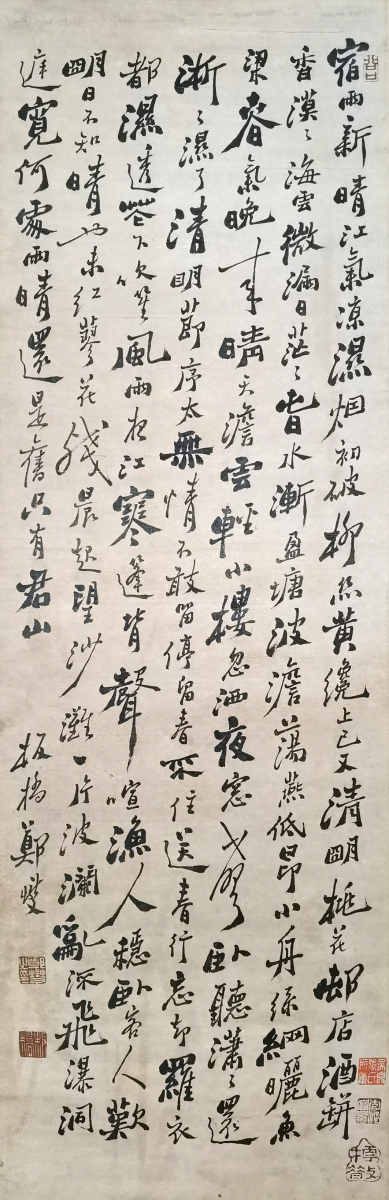 宿雨新晴江氣涼濕烟初破柳絲黃纔上巳又清明桃花邨店酒缾
香漠〻海雲微漏日茫〻春水漸盈塘波澹蕩燕低昂小舟絲網曬魚
梁春氣晚來晴天澹雲輕小樓忽洒夜窓聲臥聽瀟〻還
淅〻濕了清明節序太無情不敢留停留春不住送春行忘却羅衣
都濕透花下吹笙風雨夜江寒篷背聲喧漁人穩臥客人歎
明日不知晴也未紅蓼花殘晨起望沙灘一片波瀾亂流飛瀑洞
庭寬何處雨晴還是舊只有君山
板橋鄭燮